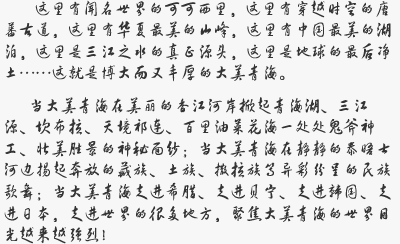 这里有闻名世界的可可西里，这里有穿越时空的唐
蕃古道，这里有华夏最美的山峰，这里有中国最美的湖
泊，这里是三江之水的真正源头，这里是地球的最后净
土……这就是博大而又丰厚的大美青海。
当大美青海在美丽的香江河岸掀起青海湖、三江
源、坎布拉、天境祁连、百里油菜花海一处处鬼斧神
工、壮美胜景的神秘面纱；当大美青海在静静的泰晤士
河边扬起奔放的藏族、土族、撒拉族等异彩纷呈的民族
歌舞；当大美青海走进希腊、走进贝宁、走进韩国、走
进日本，走进世界的很多地方，聚焦大美青海的世界目
光越来越强烈！